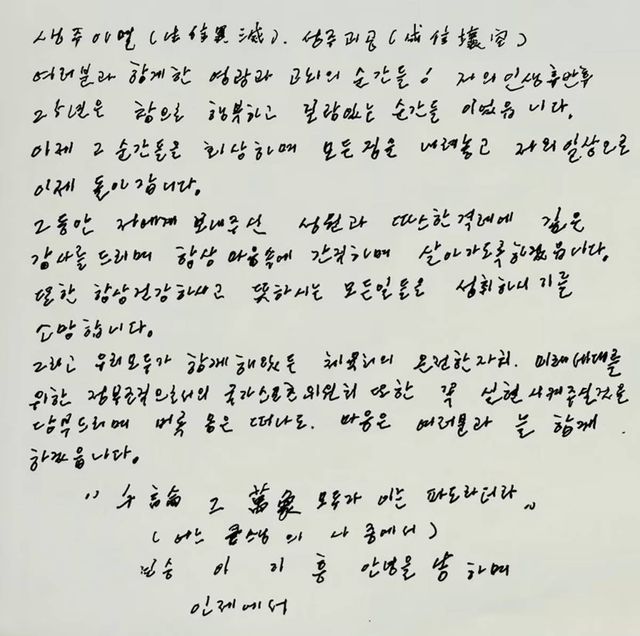 생주이멸(生住異滅). 성주괴공(成住壞空)
여러분과 함께한 영광과 고뇌의 순간들! 저의 인생후반부
25년은 참으로 행복하고 보람있는 순간들 이었습니다.
이제 그 순간들을 회상하며 모든짐을 내려놓고 저의일상으로
이제 돌아갑니다.
그동안 저에게 보내주신 성원과 따스한격려에 깊은
감사를 드리며 항상 마음속에 간직하며 살아가도록하겠읍니다.
또한 항상건강하시고 뜻하시는 모든일들을 성취하시기를
소망합니다.
그리고 우리모두가 함께해왔든 체육회의 온전한자치. 미래세대를
위한 정부조직으로서의 국가스포츠위원회 또한 꼭 실현시켜주실것을
당부드리며 비록 몸은 떠나도. 마음은 여러분과 늘 함께
하겠읍니다.
" 그 萬象 모두가 이는 파도라더라 "
(어느 큰스님의 중에서)
이기흥 안녕을 하며
인제에서